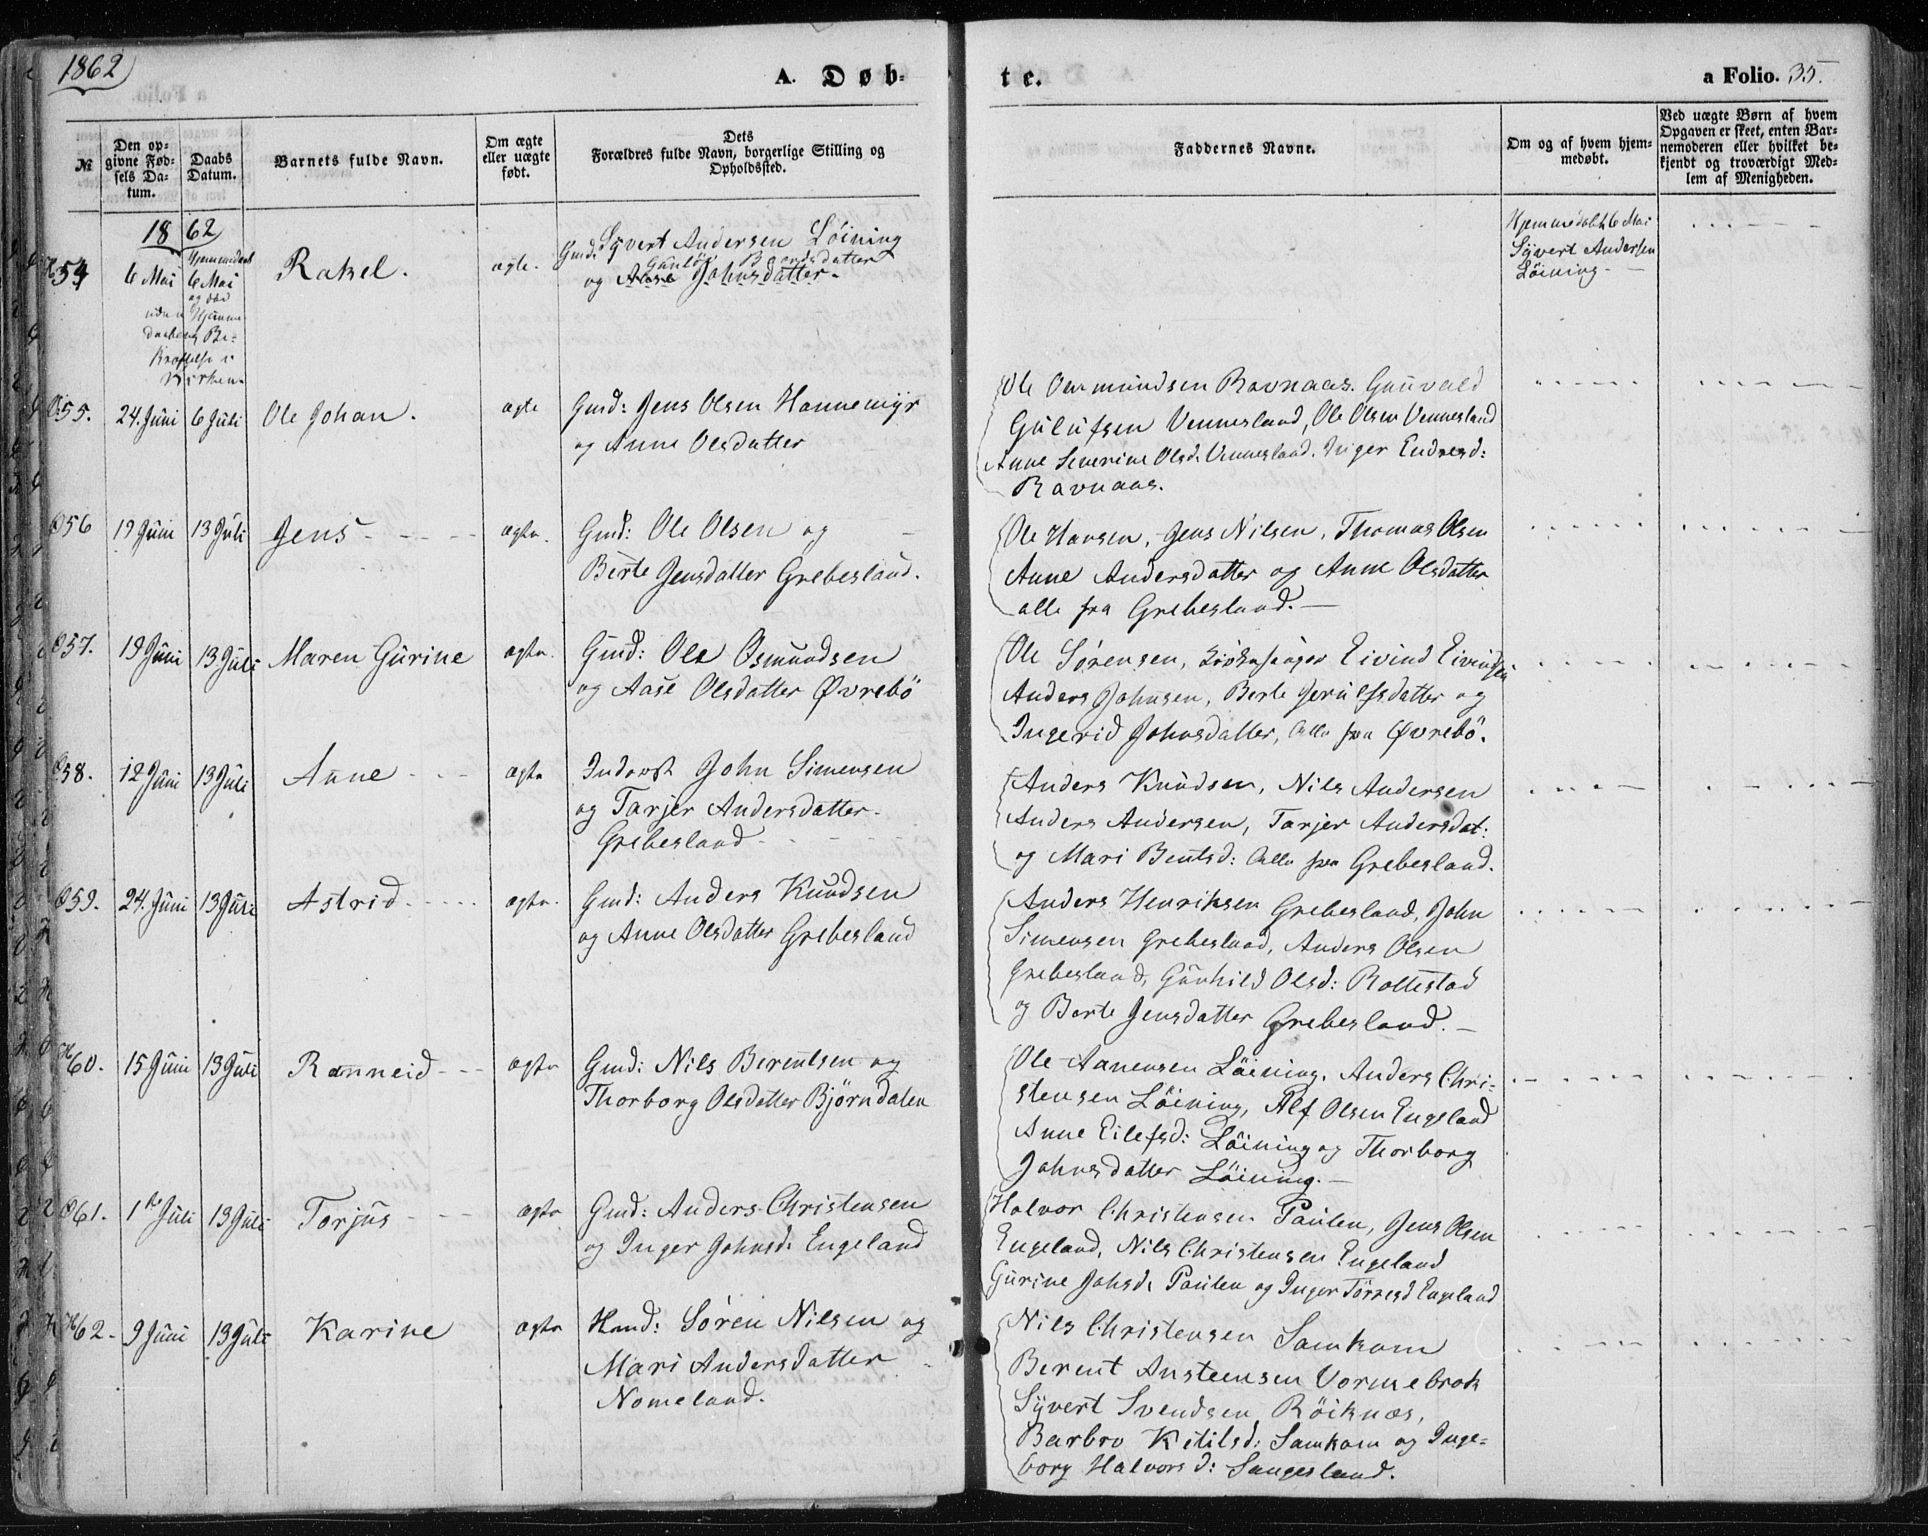 1862
A. Døb-
te.
a Folio. 35.
№
Den op-
givne Fød-
sels Da-
tum.
Daabs
Datum.
Barnets fulde Navn.
Om ægte
eller uægte
født.
Dets
Forældres fulde Navn, borgerlige Stilling og
Opholdssted.
Faddernes Navne.
Om og af hvem hjem-
medøbt.
Ved uægte Børn af hvem
Opgaven er skeet, enten Bar-
nemoderen eller hvilket be-
kjendt og troværdigt Med-
lem af Menigheden.
1862
54
6 Mai
Hjemmedøbt
6 Mai
og død
uden Hjemme
daabens Be-
kræftelse i
Kirken.
Rakel.
ægte.
Gmd: Syvert Andersen Löining
Gunlöi Baardsdatter
og Aase Johnsdatter.
Hjemmedøbt 6 Mai
Syvert Andersen
Löining
55.
24. Juni
6 Juli
Ole Johan.
ægte
Gmd: Jens Olsen Hannemyr
og Anne Olsdatter
Ole Osmundsen Ravnaas. Gunvald
Gulufsen Vennesland, Ole Olsen Vennesland
Anne Severine Olsd. Vennesland. Inger Endresd:
Ravnaas.
56
19 Juni
13 Juli
Jens
ægte.
Gmd: Ole Olsen og
Berte Jensdatter Grebesland.
Ole Hansen, Jens Nilsen, Thomas Olsen
Anne Andersdatter og Anne Olsdatter
alle fra Grebesland.
57.
19 Juni
13 Juli
Maren Gurine
ægte.
Gmd: Ole Osmundsen
og Aase Olsdatter Øvrebö
Ole Sørensen, Kirkesanger Eivind Eivindsen
Anders Johnsen, Berte Jerulfsdatter og
Ingerid Johnsdatter, Alle fra Øvrebö.
58.
12 Juni
13 Juli
Anne
ægte
Inderst John Simensen
og Tarjer Andersdatter
Grebesland
Anders Knudsen, Nils Andersen
Anders Andersen, Tarjer Andersdat:
og Mari Bentsd: Alle fra Grebesland.
59.
24. Juni
13 Juli
Astrid
ægte.
Gmd: Anders Knudsen
og Anne Olsdatter Grebesland
Anders Henriksen Grebesland, John
Simensen Grebesland, Anders Olsen
Grebesland, Gunhild Olsd: Rollestad
og Berte Jensdatter Grebesland.
60.
15 Juni
13 Juli
Ranneid
ægte
Gmd: Nils Berentsen og
Thorborg Olsdatter Björndalen
Ole Aanensen Löining, Anders Chri-
stensen Löining, Alf Olsen Engeland
Anne Eilefsd: Löining og Thorborg
Johnsdatter Löining.
61.
1ste Juli
13 Juli
Torjus
ægte
Gmd: Anders Christensen
og Inger Johnsd. Engeland
Halvor Christensen Paulen, Jens Olsen
Engeland, Nils Christensen Engeland
Gurine Johsd. Paulen og Inger Törresd Engeland
62.
9 Juni
13 Juli
Karine
ægte
Hmd: Søren Nilsen og
Mari Andersdatter
Nomeland.
Nils Christensen Samkom
Berent Ansteensen Vormebrok
Syvert Svendsen Röiknæs,
Barbro Ketilsd: Samkom og Inge-
borg Halvorsd: Sangesland.